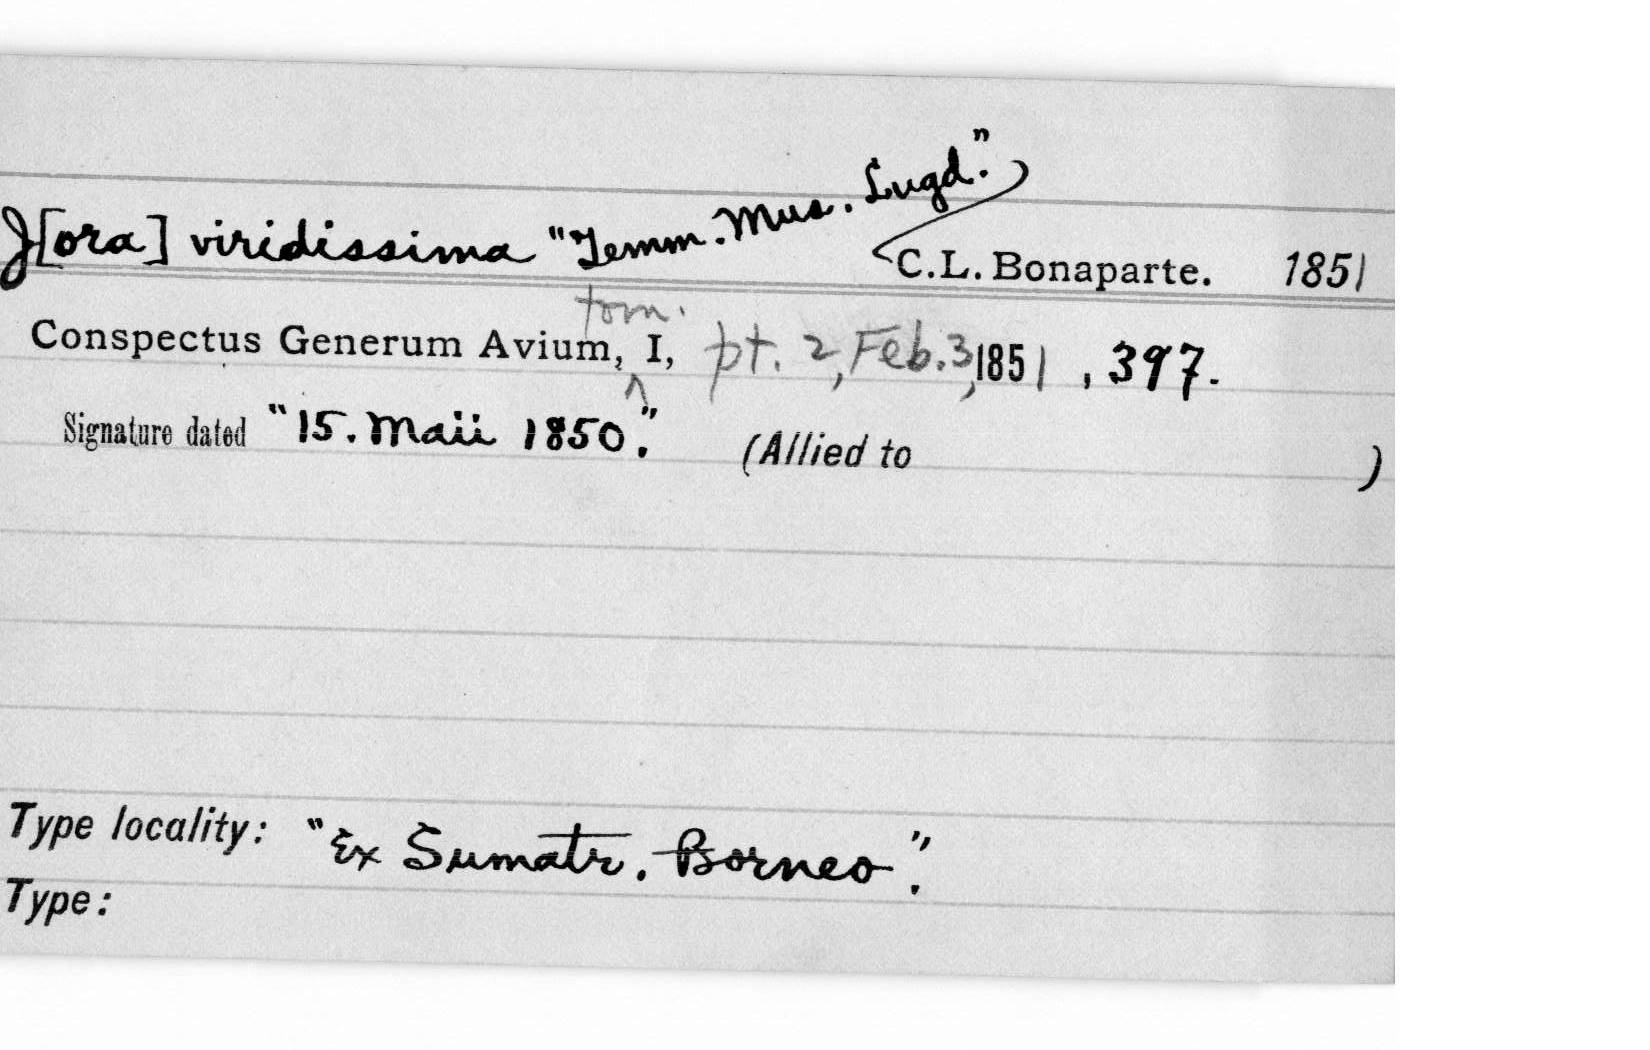 J[ora] viridissima "Temm. Mus. Lugd." C.L. Bonaparte. 1851
Conspectus Generum Avium, tom. I, pt. 2, Feb. 3, 1851, 397.
Signature dated "15. Maii 1850." (Allied to )
Type locality: "Ex Sumatr. Borneo".
Type: